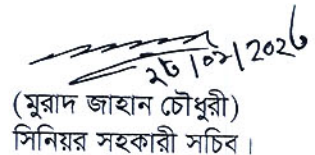 ২৮/০১/২০২৬
(মুরাদ জাহান চৌধুরী)
সিনিয়র সহকারী সচিব।